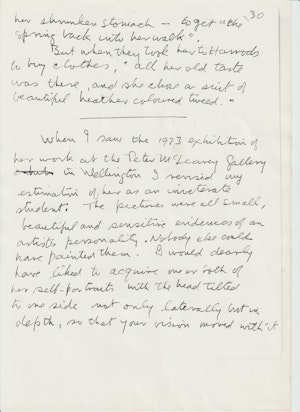 30
her shrunken stomach – to get "the
spring back into her walk".
But when they took her to Harrods
to buy clothes, "all her old taste
was there, and she chose a suit of
beautiful heather coloured tweed."
When I saw the 1973 exhibition of
her work at the Peter McLeavey Gallery
in Wellington I revised my
estimation of her as an inveterate
student. The pictures were all small,
beautiful and sensitive evidences of an
artist's personality. Nobody else could
have painted them. I would dearly
have liked to acquire one or both of
her self-portraits with the head tilted
to one side not only laterally but in
depth, so that your vision moved with it